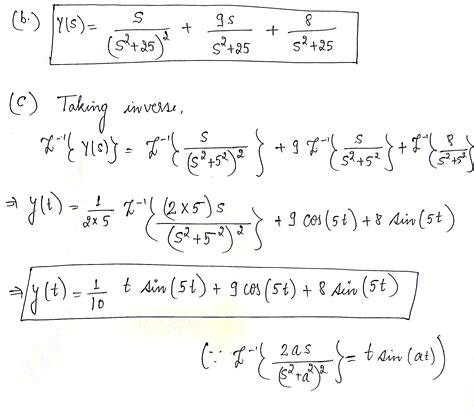 (b.) Y(s) = s/(s²+25)² + 9s/(s²+25) + 8/(s²+25)
(c) Taking inverse,
ℒ⁻¹{Y(s)} = ℒ⁻¹{s/(s²+5²)²} + 9 ℒ⁻¹{s/(s²+5²)} + ℒ⁻¹{8/(s²+5²)}
⇒ y(t) = 1/(2×5) ℒ⁻¹{(2×5)s/(s²+5²)²} + 9 cos(5t) + 8 sin(5t)
⇒ y(t) = 1/10 t sin(5t) + 9 cos(5t) + 8 sin(5t)
(∵ ℒ⁻¹{2as/(s²+a²)²} = t sin(at))